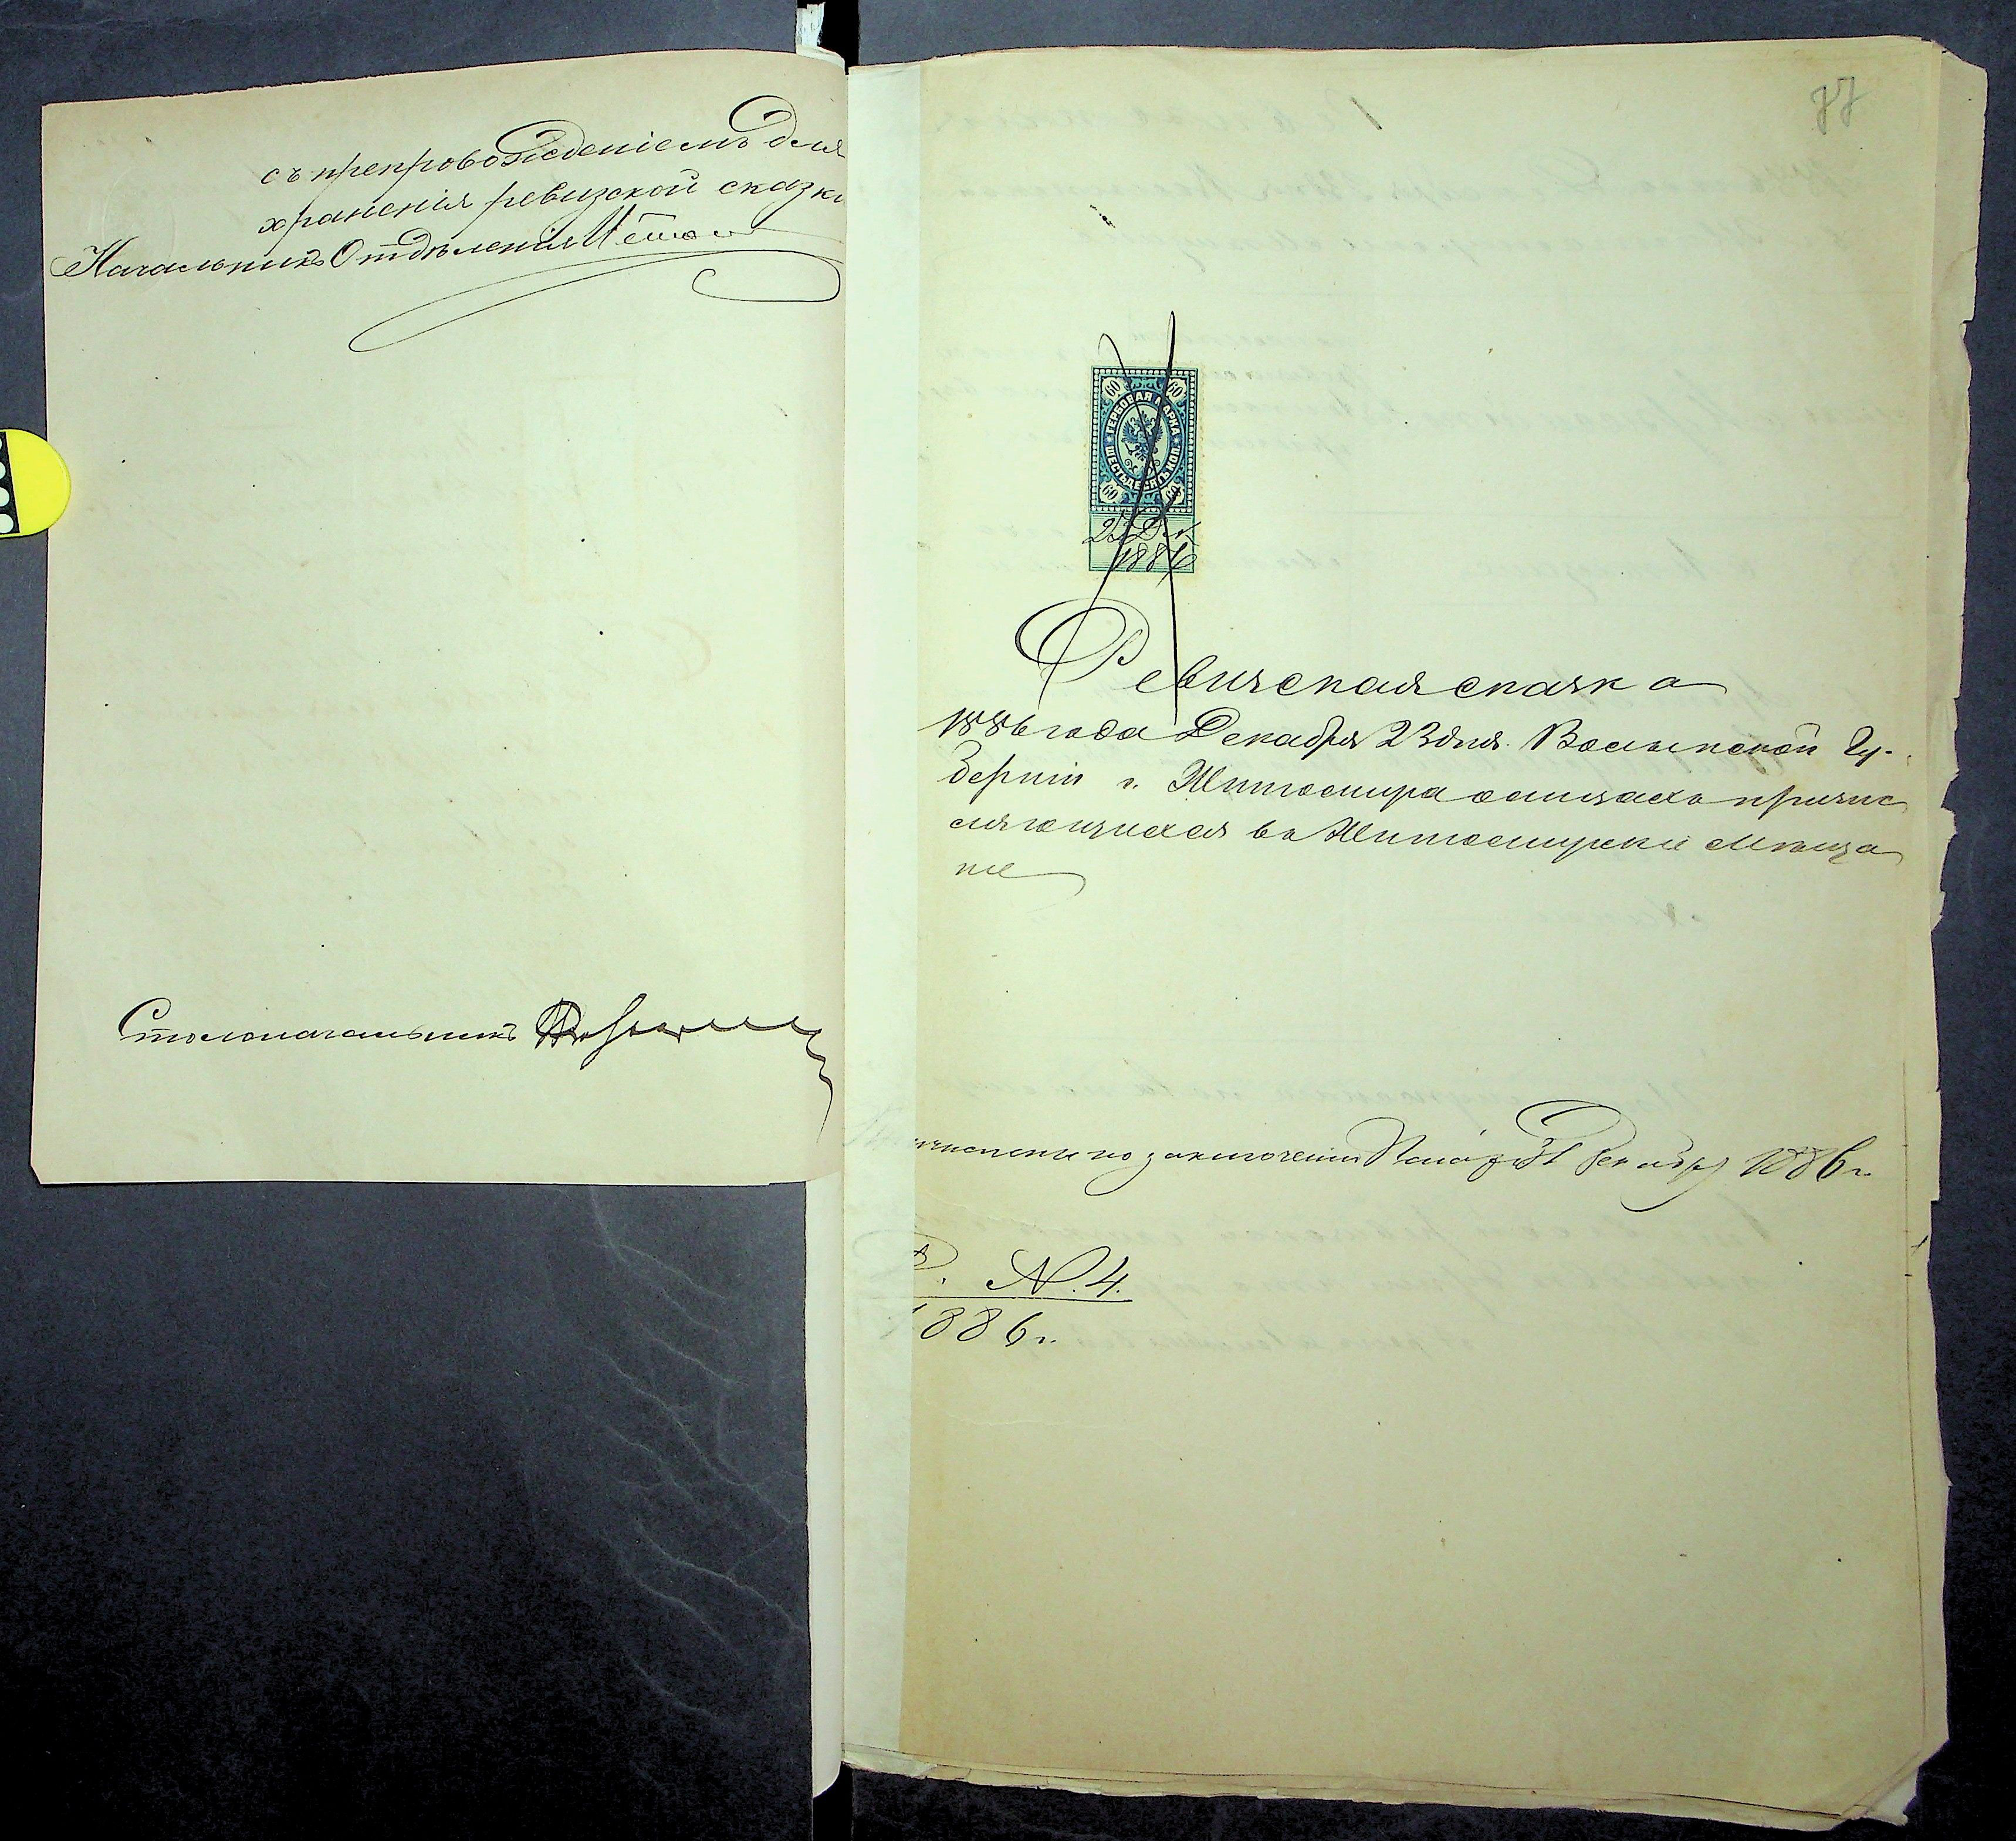 съ препровожденіемъ для
храненія ревизской сказки
Начальникъ Отдѣленія
Столоначальникъ
77
60 60
ГЕРБОВАЯ МАРКА
ШЕСТЬДЕСЯТЪ КОП.
60 60
23 Дек
1886
Ревизская сказка
1886 года Декабря 23 дня. Волынской Гу-
берніи г. Житомира о лицахъ причис
ляющихся въ Житомирскіе мѣща
не
по заключенію Палаты Декабря 1886 г.
N. 4.
1886 г.